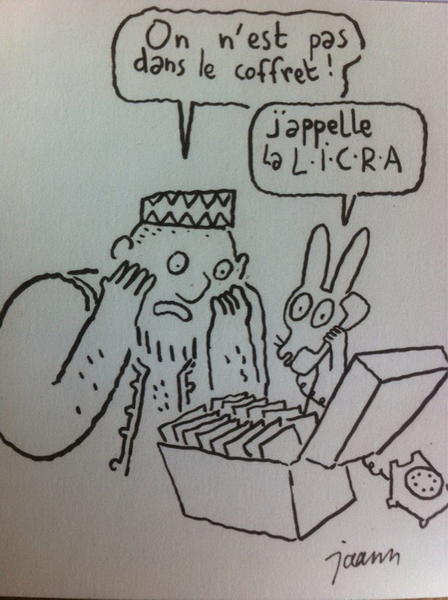 On n'est pas
dans le coffret!
j'appelle
la L.I.C.R.A
jaann